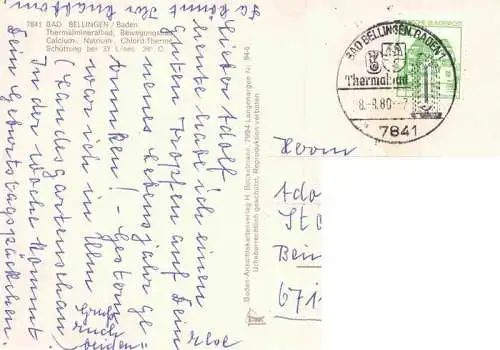 7841 BAD BELLINGEN / Baden
Thermalmineralbad, Bewegungs
Calcium-, Natrium-, Chlorid-Therme
Schüttung bei 33 L/sec.
Lieber Adolf
heute habe ich einen
guten Tropfen auf Dein
neues Lebensjahr ge
trunken! - Gestern
war ich in Ulm
(Landesgartenschau)
In der Woche kommt
Dein Geburtstagspäckchen.
Gruß
Euch
beiden
Baden-Ansichtskartenverlag H. Bockelmann, 7994 Langenargen Nr. 94-6
Urheberrechtlich geschützt, Reproduktion verboten
BAD BELLINGEN, BADEN
Thermalbad
8.-9.80.-7
7841
Herrn
Ado
671